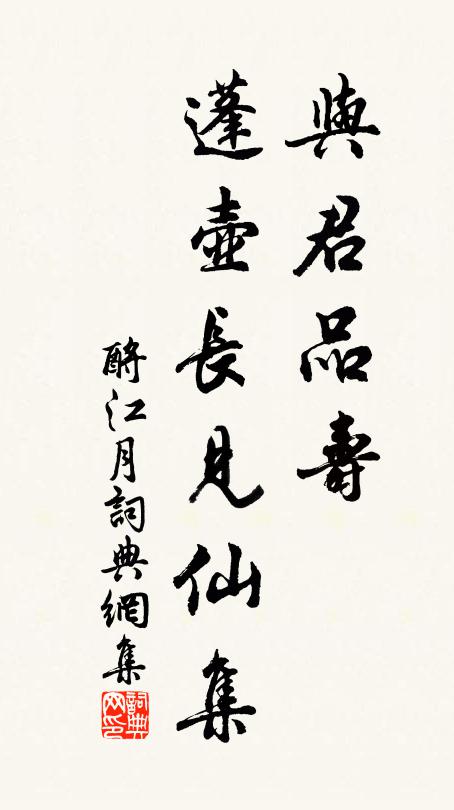 與君品壽
蓬壺長見仙集
酹江月詞典網集
詞典
网印